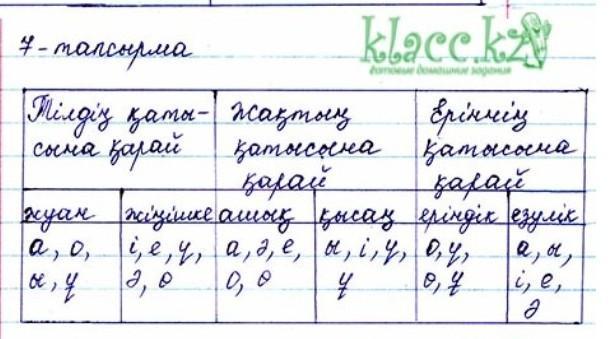 7 - тапсырма
klacc.kz
готовые домашние задания
Тілдің қаты-
сына қарай
Жақтың
қатысына
қарай
Еріннің
қатысына
қарай
жуан
жіңішке
ашық
қысаң
еріндік
езулік
а, о,
ы, ұ
і, е, ү,
ә, ө
а, ә, е,
о, ө
ы, і, ү,
ұ
о, ү,
ө, ұ
а, ы,
і, е,
ә